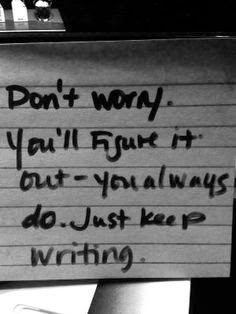 Don't worry.
You'll Figure it
out - you always
do. Just keep
writing.